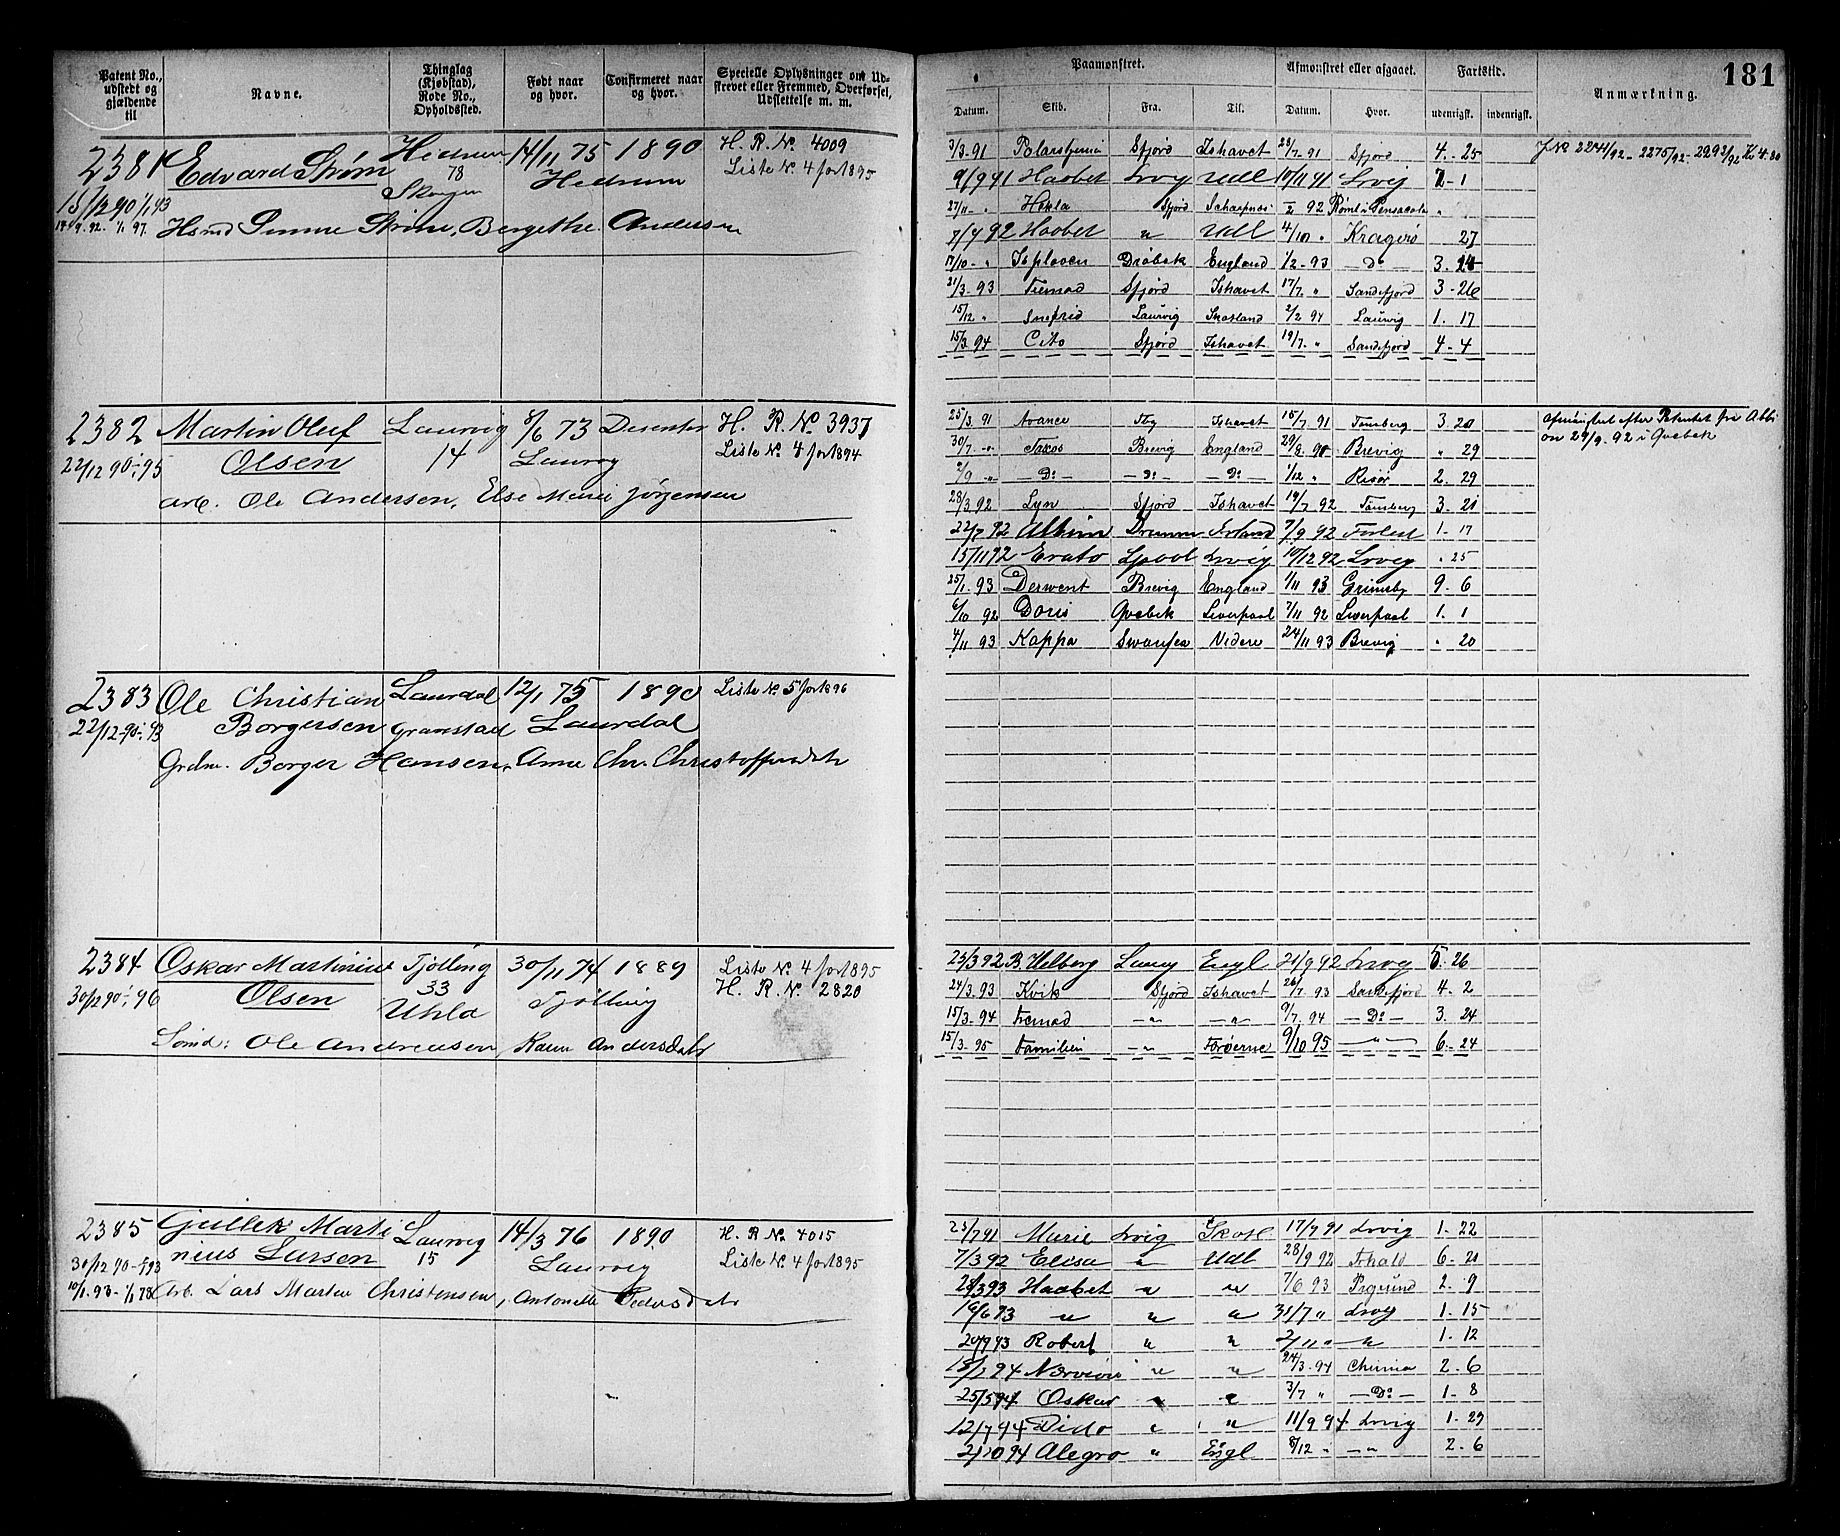 181
Patent No., udstedt og gjældende til
Navne.
Thinglag (Kjøbstad), Rode No., Opholdssted.
Født naar og hvor.
Confirmeret naar og hvor.
Specielle Oplysninger om Udstrevet eller Fremmed, Overførsel, Udslettelse m. m.
Paamønstret.
Afmønstret eller afgaaet.
Fartstid.
Anmærkning.
Datum. Skib. Fra. Til. Datum. Hvor. udenrigsk. indenrigsk.
2381 Edvard Strøm Hedrum 14/11 75 1890 H. R. No 4009
78 Hedrum Liste No 4 for 1895
Skogen
15/12 90
Andersen
7/3. 91 Sfjord Ishavet 23/7. 91 Sfjord 4. 25
9/9 91 Haabet Lrvig Udl 10/11 91 Lrvig 2 1
27/11 " Hekla Sfjord 92 Pensacola "
92 Haabet " Udl 4/10 " Kragerø 27
17/10 - " Drøbak England 1/2 - 93 - Do - 3.
21/3. 93 Sfjord Ishavet 17/7. " Sandefjord 3 - 26
15/12 " Snefrid Laurvig Skotland 2/2 94 Laurvig 1. 17
15/3. 94 Cito Sfjord Ishavet 19/7. " Sandefjord 4 - 4
2382 Martin Oluf Laurvig 8/6 73 Dissenter H. R. No 3937
Olsen 14 Laurvig Liste No 4 for 1894
22/12 90 - 95
Arb. Ole Andersen, Else Marie Jørgensen
25/3. 91 Avance Tbg Ishavet 15/7. 91 Tønsberg 3. 20
30/7. Brevig England Brevig " 29
2/9 " - Do - - Do - - Do - 1/12 " Risør 2. 29
28/3. 92 Lyn Sfjord Ishavet 19/7. 92 Tønsberg 3. 21
22/7 92 Albion 7/9 92 1. 17
15/11 92 Erato Lpool Lrvig 10/12 92 Lrvig " 25
25/1. 93 Derwent Brevig England 1/11 93 Grimsby 9. 6
6/10 92 Doris Qvebek Liverpool 7/11 92 Liverpool 1. 1
4/11 93 Kappa Swansea Videre 24/11 93 Brevig " 20
Afmønstret efter Patentet fra Albi
on 29/9. 92 i Qvebek
2383 Ole Christian Laurdal 12/1 75 1890 Liste No 5 for 1896
Borgersen Laurdal
22/12 90 - 93
Grdm. Borger Hansen, Anne Chr. Christoffersdatr
2384 Oskar Martinius Tjølling 30/11 74 1889 Liste No 4 for 1895
Olsen 33 Tjølling H. R. No 2820
30/12 90 - 96 Uhla
Sømd: Ole Andreasen, Karen Andersdatr
25/3 92 B. Helberg Laurv Engl 21/9 92 Lrvg 5. 26
24/3. 93 Kvik Sfjord Ishavet 26/7. 93 Sandefjord 4. 2
15/3. 94 Fremad - " - - " 9/7. 94 - Do - 3. 24
15/3. 95 Familien - " Færøerne 9/10 95 - " - 6. 24
2385 Gullek Marti Laurvig 14/3 76 1890 H. R No 4015
nius Larsen 15 Laurvig Liste No 4 for 1895
30/12 90
Arb. Lars Martin Christensen, Antonette Pedersdatr
25/7 91 Marie Lrvig Skotl 17/9 91 Lrvig 1. 22
7/3 92 Elisa " Udl 28/9 92 Frhald 6. 21
28/3 93 Haabet " " 7/6 93 Prgrund 2. 9
16/6 93 " " " 31/7 " Lrvig 1. 15
20/9 93 Robert " " 2/11 " " 1. 12
94 " " 24/3. 94 2. 6
25/5 94 Oskar " " 3/7 " - Do - 1. 8
12/7 94 Dido " " 11/9 94 Lrvig 1. 29
2/10 94 Alegro " Engl 8/12 " - " 2. 6